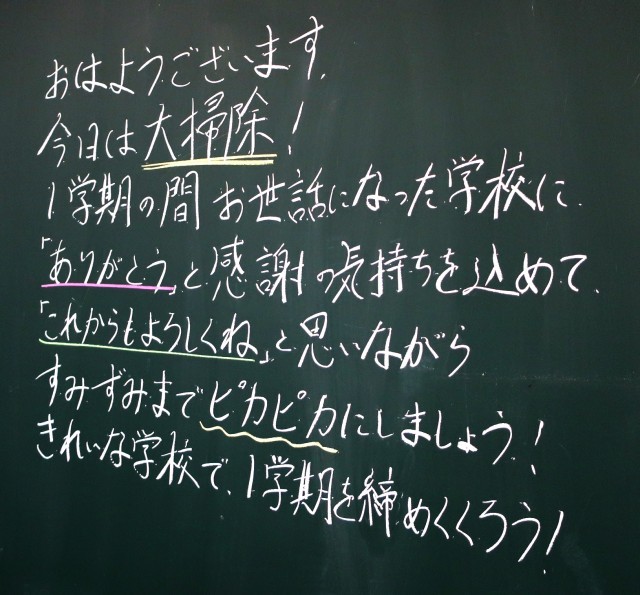 おはようございます。
今日は大掃除！
1学期の間お世話になった学校に
「ありがとう」と感謝の気持ちを込めて、
「これからもよろしくね」と思いながら
すみずみまでピカピカにしましょう！
きれいな学校で、1学期を締めくくろう！